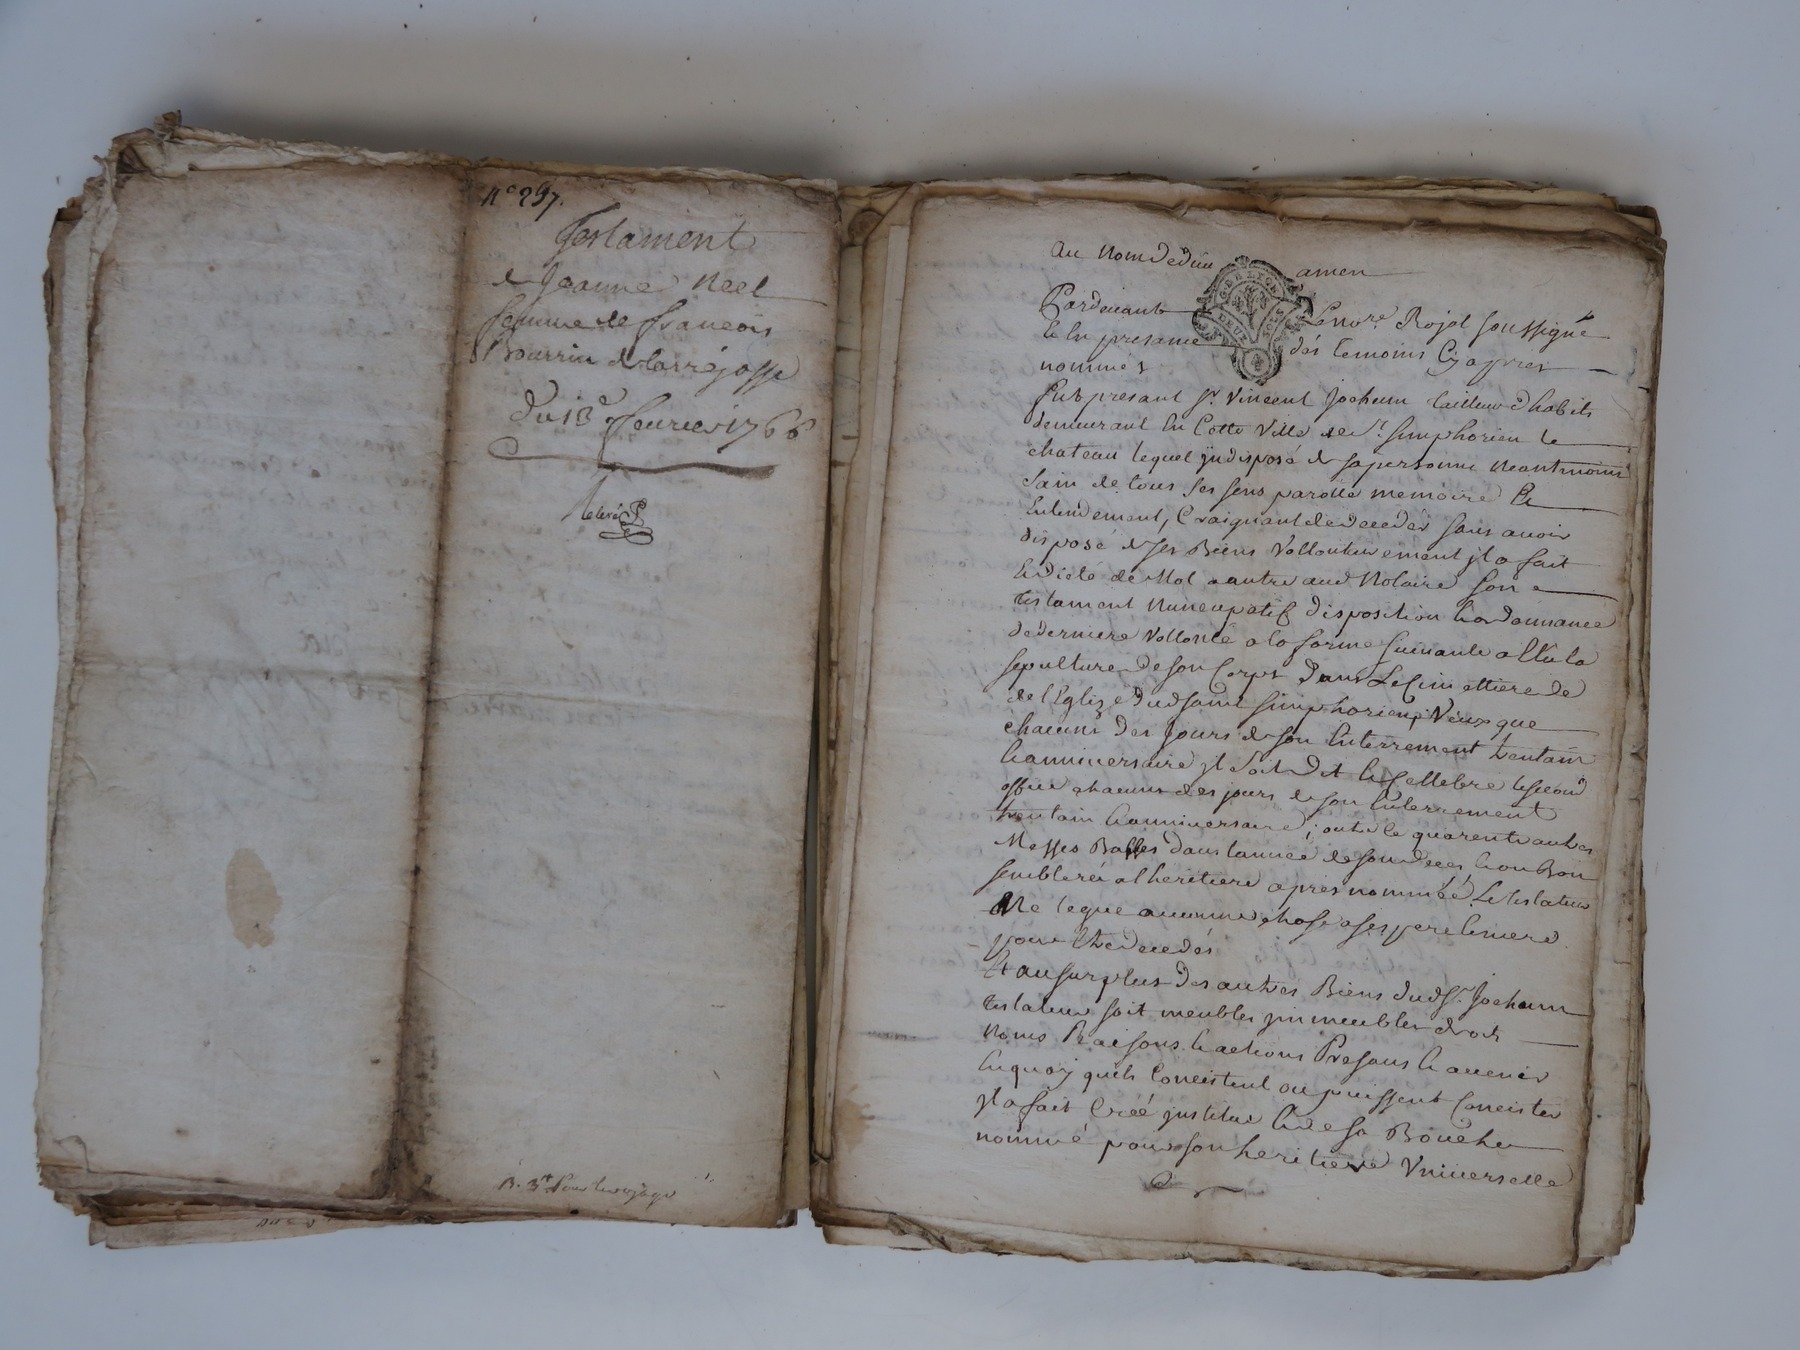 N° 297.
Testament
de Jeanne Neel
femme de francois
Bourrin de larrajasse
du 13e feurier 1766
B. 3
au Nom de dieu amen
GN. DE LYON
DEUX SOLS
Pardeuant Le nore. Royal soussigné
Et En presance dés temoins Cy apres
nommés
fut present Sr. Vincent Jochum tailleur d'habits
demeurant En Cette Ville de St. simphorien le
chateau lequel jndisposé de sa personne Neantmoins
sain de tous ses sens parolle memoire Et
Entendement, Craignant de deceder sans auoir
disposé de ses Biens Vollontairement jl a fait
Et dicté de Mot a autre aud Notaire son
testament Nuncupatif disposition Et ordonnance
de derniere Vollonté a la forme suiuante a Elu la
sepulture de son Corps dans Le Cimettiere de
de l'Eglize dud saint simphorien, Veux que
chacuns des jours de son Enterrement trentain
Et anniuersaire jl soit dit Et Cellebré
office chacuns des jours de son Enterrement
trentain Et anniuersaire; outre le quarente autres
Messes Basses dans l'année de son deces, Et ou Bon
semblera a l heritiere apres nommée, Le testateur
Ne legue aucunne chose a ses pere Et mere
pour Etre decedés
Et au surplus des autres Biens dud Sr. Jochum
testateur soit meubles jmmeubles droits
Noms Raisons Et actions Presans Et auenir
En quoy quils Concistent ou puissent Concister
jl a fait Créé jnstitue Et de sa Bouche
nommé pour son heritiere Vniuerselle